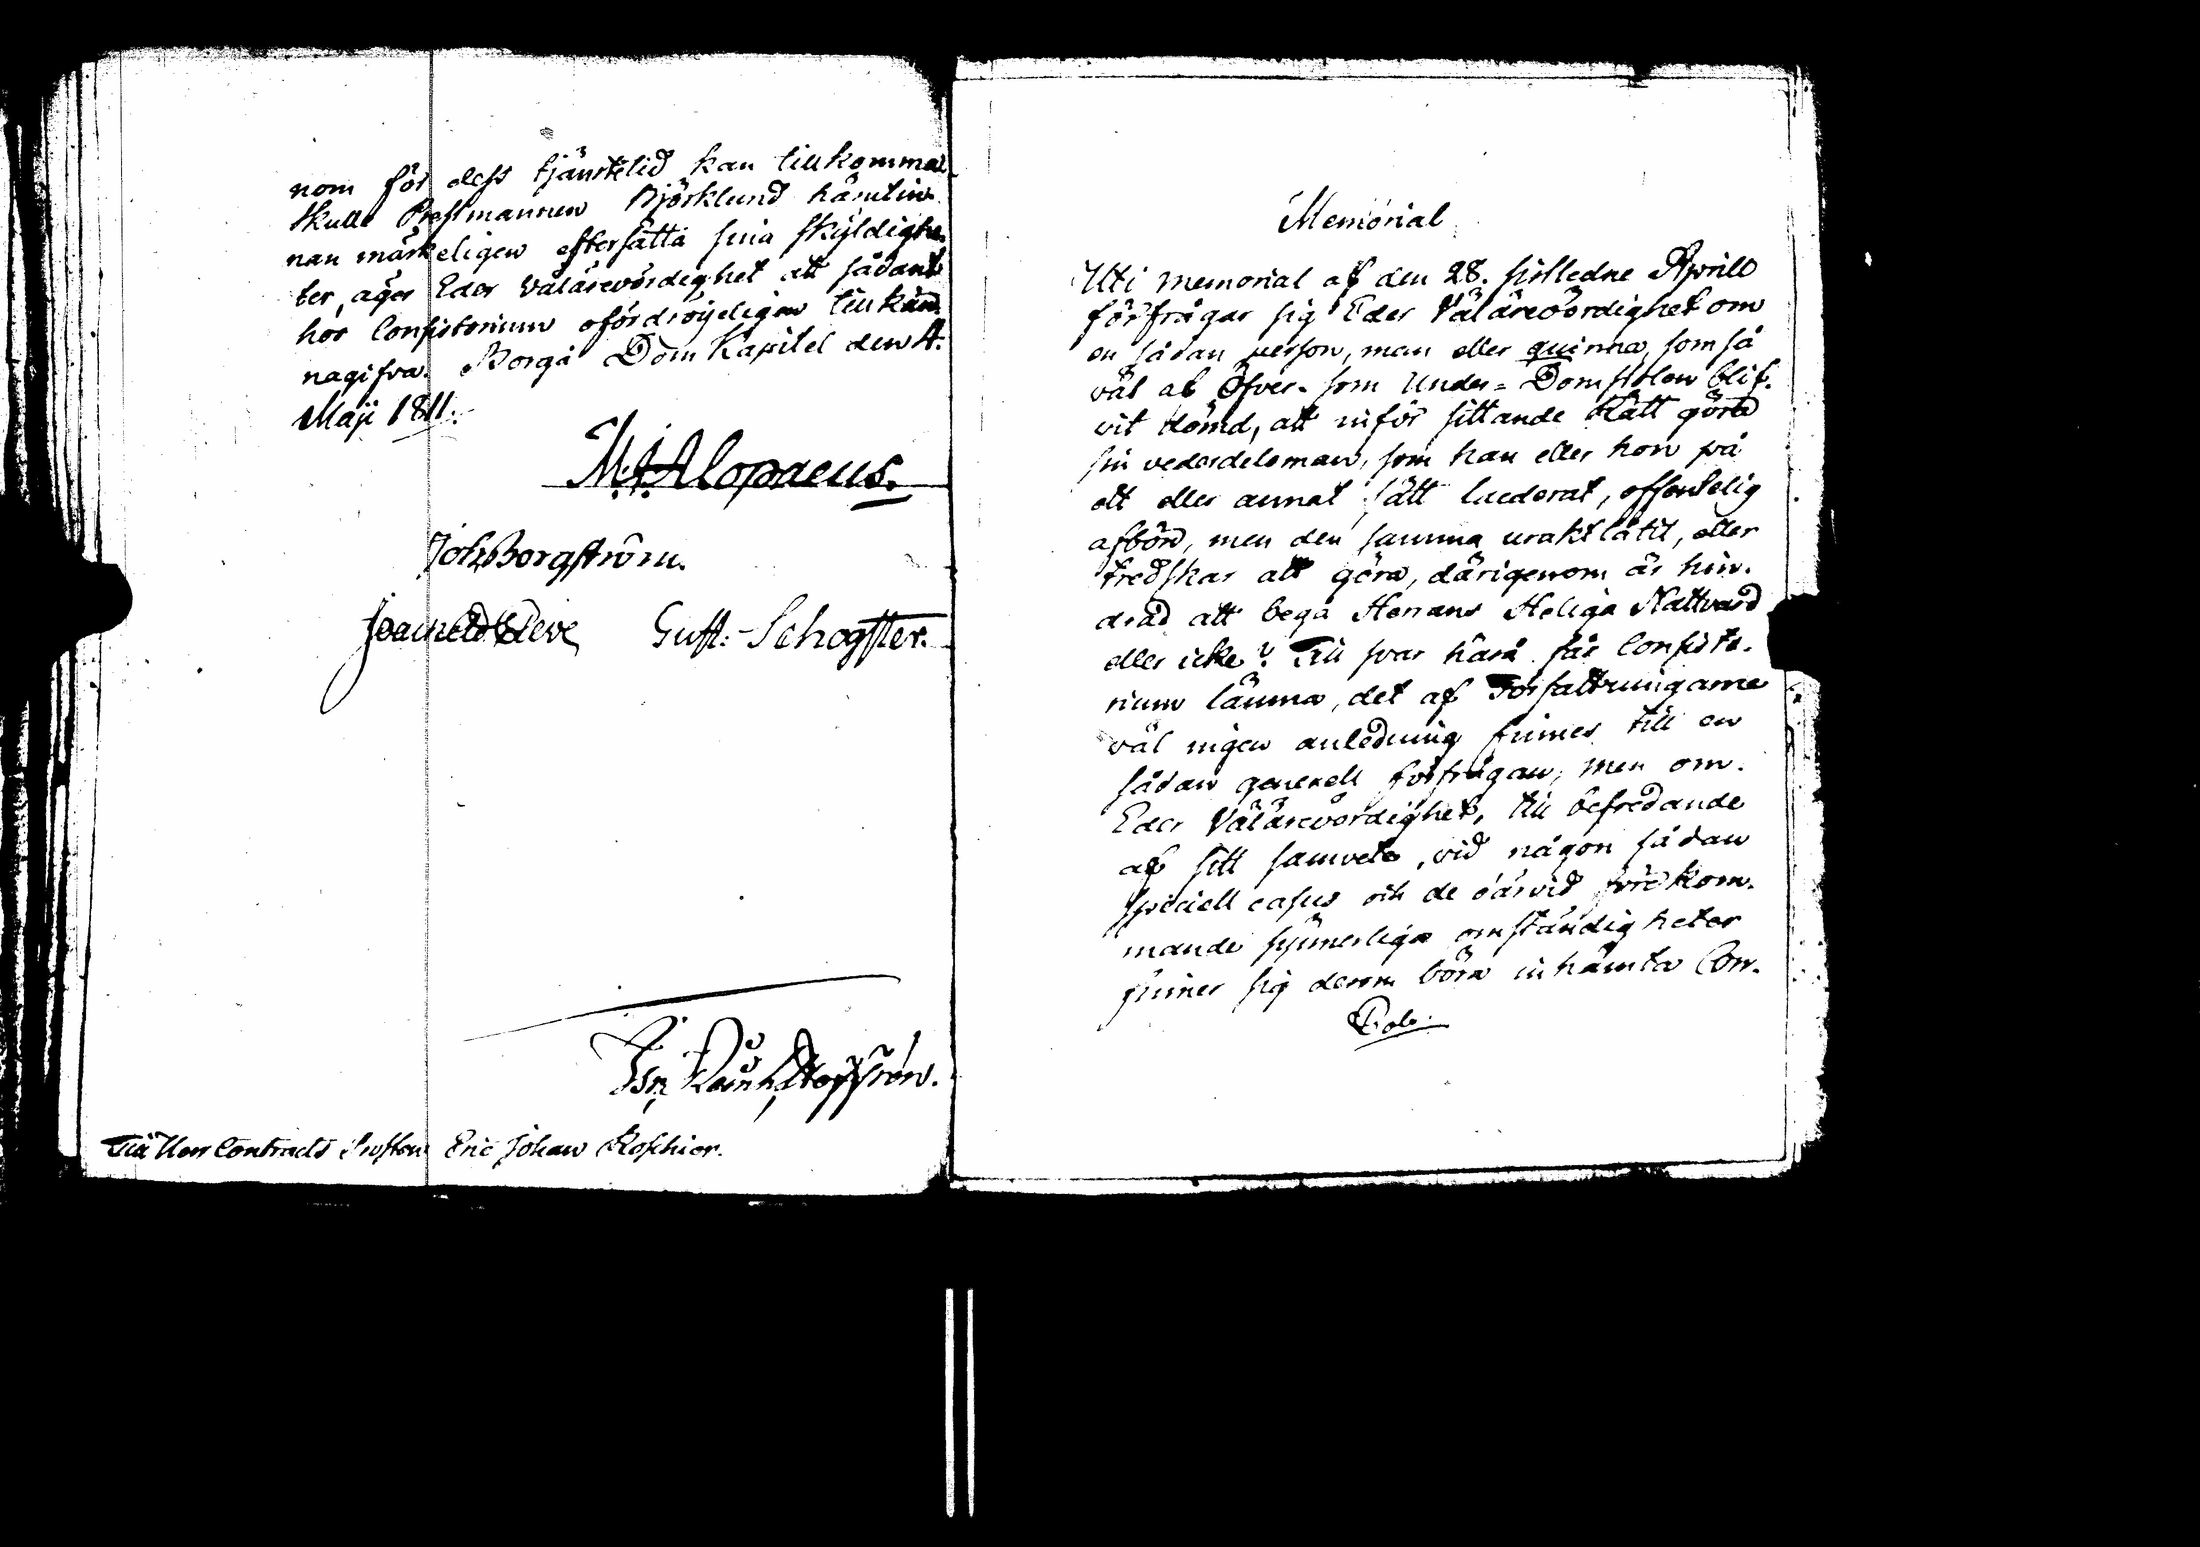 nom för dess tjänstetid kan tillkomma.
Skulle Prestmannen Björklund härutin-
nan märkeligen eftersätta sina skyldighe-
ter, äger Eder Välärevördighet att sådant
hos Consistorium ofördröyeligen tillkän-
nagifva. Borgå Dom Kapitel den 4.
Maji 1811.
M. Alopaeus.
Joh. Borgström.
Gust. Schogster.
Till Herr Contracts Prosten Eric Johan Roschier.
Memorial
Uti memorial af den 28. sistledne Aprill
förfrågar sig Eder Välärevördighet om
en sådan person, man eller quinna, som så
väl af Öfver- som Under-Domstolen blif-
vit dömd, att inför sittande Rätt göra
sin vederdeloman, som han eller hon på
ett eller annat sätt laederat, offentelig
afbön, men den samma uraktlåtit, eller
tredskar att göra, därigenom är hin-
drad att begå Herrans Heliga Nattvard
eller icke? Till svar härå får Consisto-
rium lämna, det af Författningarne
väl ingen anledning finnes till en
sådan generell förfrågan, men om
Eder Välärevördighet, till befredande
af sitt samvete, vid någon sådan
speciell casus och de därvid förekom-
mande synnerliga omständigheter
finner sig derom böra inhämta Con-